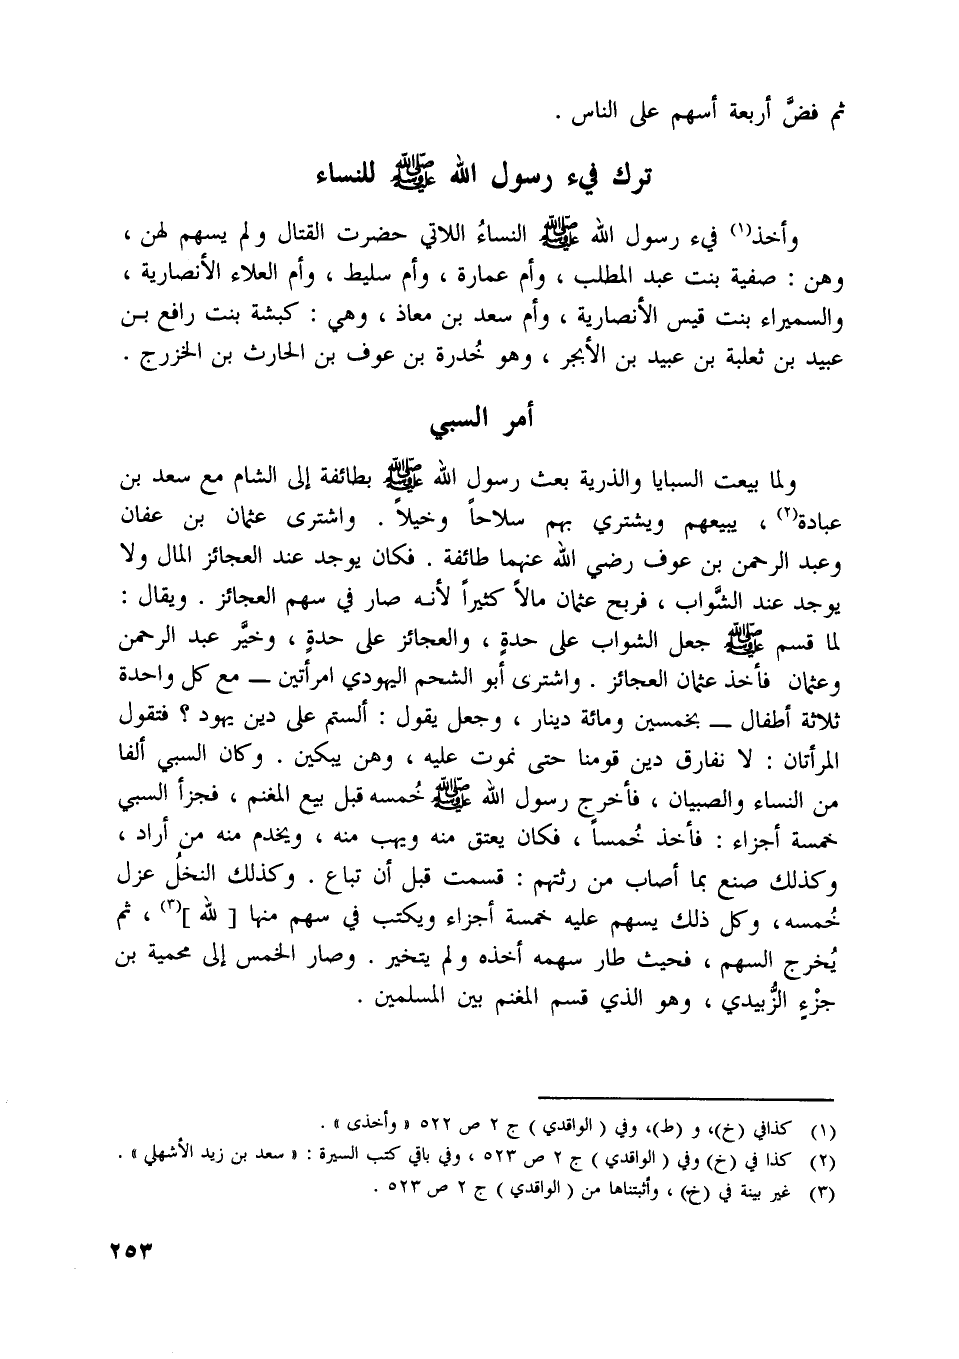 ثم فضَّ أربعة أسهم على الناس .
ترك فيء رسول الله ﷺ للنساء
وأخذ(١) فيء رسول الله ﷺ النساءُ اللاتي حضرت القتال ولم يسهم لهن ،
وهن : صفية بنت عبد المطلب ، وأم عمارة ، وأم سليط ، وأم العلاء الأنصارية ،
والسميراء بنت قيس الأنصارية ، وأم سعد بن معاذ ، وهي : كبشة بنت رافع بن
عبيد بن ثعلبة بن عبيد بن الأبجر ، وهو خُدرة بن عوف بن الحارث بن الخزرج .
أمر السبي
ولما بيعت السبايا والذرية بعث رسول الله ﷺ بطائفة إلى الشام مع سعد بن
عبادة(٢) ، يبيعهم ويشتري بهم سلاحاً وخيلاً . واشترى عثمان بن عفان
وعبد الرحمن بن عوف رضي الله عنهما طائفة . فكان يوجد عند العجائز المال ولا
يوجد عند الشَّواب ، فربح عثمان مالاً كثيراً لأنه صار في سهم العجائز . ويقال :
لما قسم ﷺ جعل الشواب على حدةٍ ، والعجائز على حدةٍ ، وخيَّر عبد الرحمن
وعثمان فأخذ عثمان العجائز . واشترى أبو الشحم اليهودي امرأتين — مع كل واحدة
ثلاثة أطفال — بخمسين ومائة دينار ، وجعل يقول : ألستم على دين يهود ؟ فتقول
المرأتان : لا نفارق دين قومنا حتى نموت عليه ، وهن يبكين . وكان السبي ألفا
من النساء والصبيان ، فأخرج رسول الله ﷺ خُمسه قبل بيع المغنم ، فجزأ السبي
خمسة أجزاء : فأخذ خُمساً ، فكان يعتق منه ويهب منه ، ويخدم منه من أراد ،
وكذلك صنع بما أصاب من رثتهم : قسمت قبل أن تباع . وكذلك النخلُ عزل
خُمسه، وكل ذلك يسهم عليه خمسة أجزاء ويكتب في سهم منها [ لله ](٣) ، ثم
يُخرج السهم ، فحيث طار سهمه أخذه ولم يتخير . وصار الخمس إلى محمية بن
جزْءٍ الزُّبيدي ، وهو الذي قسم المغنم بين المسلمين .
(١) كذافي (خ)، و (ط)، وفي ( الواقدي ) ج ٢ ص ٥٢٢ « وأخذى » .
(٢) كذا في (خ) وفي ( الواقدي ) ج ٢ ص ٥٢٣ ، وفي باقي كتب السيرة : « سعد بن زيد الأشهلي » .
(٣) غير بينة في (خ) ، وأثبتناها من ( الواقدي ) ج ٢ ص ٥٢٣ .
٢٥٣